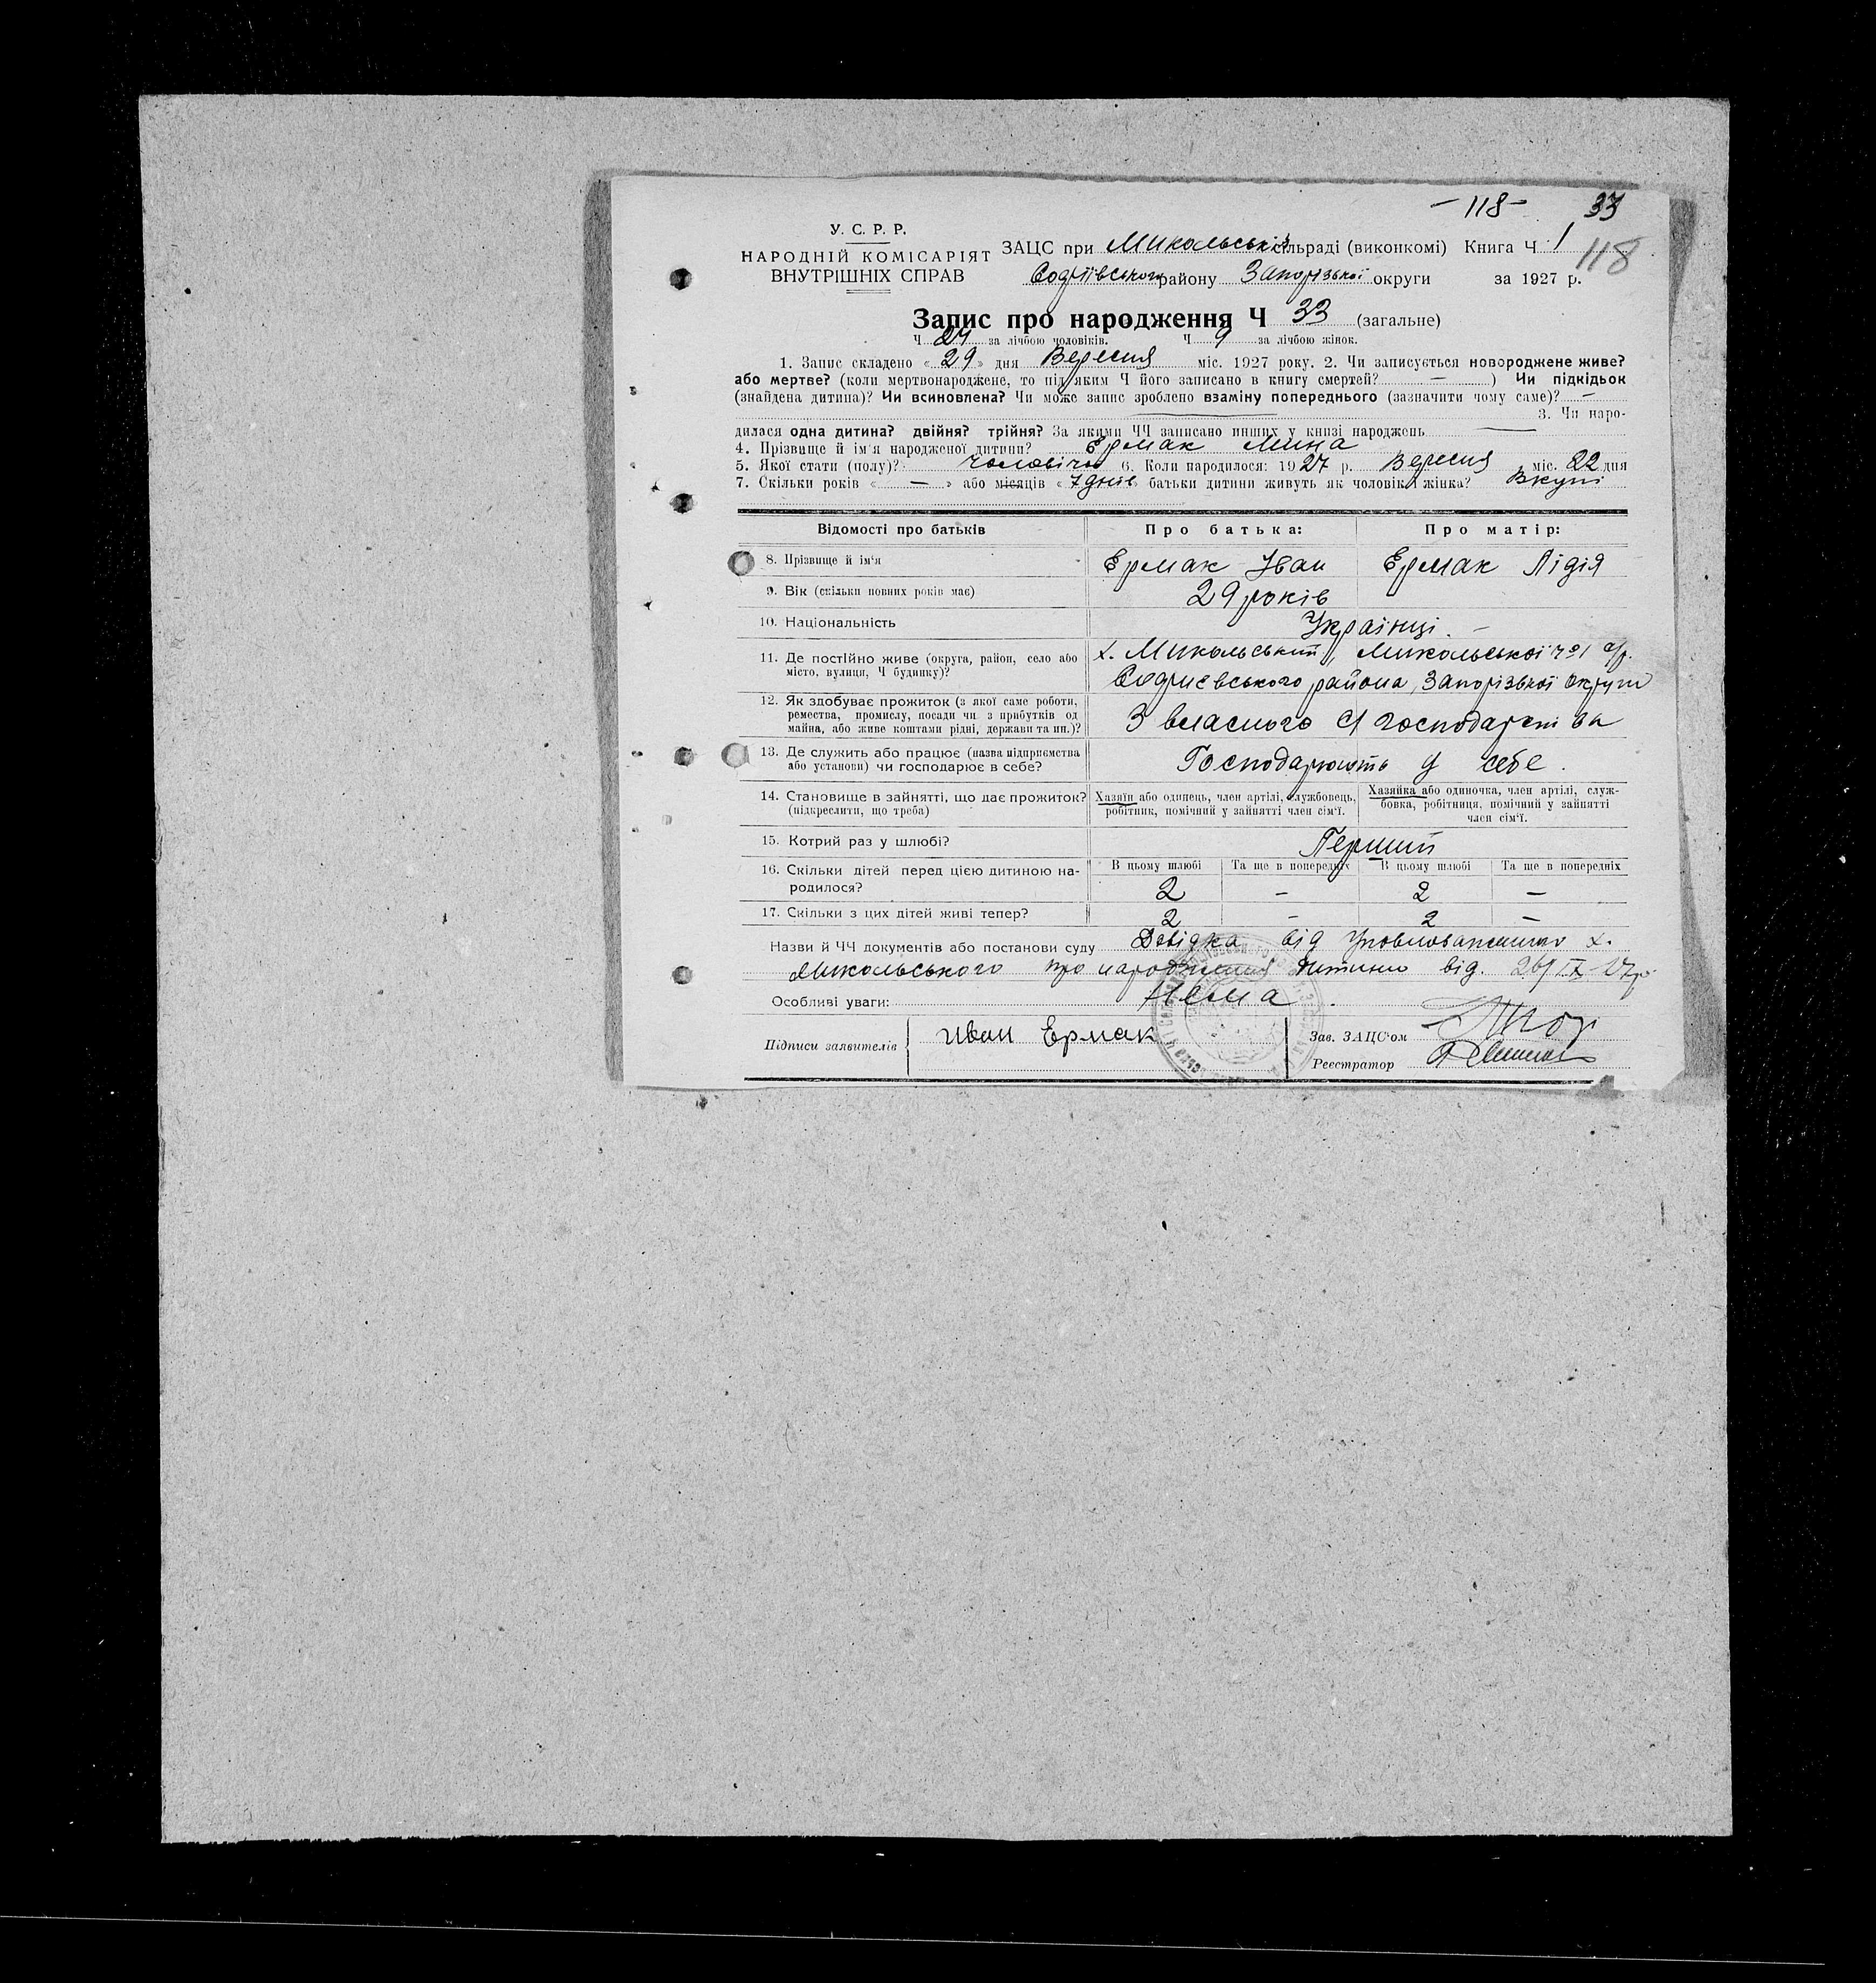 - 118 - 33
У. С. Р. Р.
НАРОДНІЙ КОМІСАРІЯТ
ВНУТРІШНІХ СПРАВ
ЗАЦС при Микольській сільраді (виконкомі) Книга Ч 1
118
Софіївського району Запорізької округи за 1927 р.
Запис про народження Ч 33 (загальне)
Ч 24 за лічбою чоловіків. Ч 9 за лічбою жінок.
1. Запис складено «29» дня Вересня міс. 1927 року. 2. Чи записується новороджене живе?
або мертве? (коли мертвонароджене, то під яким Ч його записано в книгу смертей? — ) Чи підкідьок
(знайдена дитина)? Чи всиновлена? Чи може запис зроблено взаміну попереднього (зазначити чому саме)? —
— 3. Чи наро-
дилася одна дитина? двійня? трійня? За якими ЧЧ записано инших у книзі народжень —
4. Прізвище й ім'я народженої дитини? Ермак Мина
5. Якої стати (полу)? чоловічої 6. Коли народилося: 1927 р. Вересня міс. 22 дня
7. Скільки років « — » або місяців «7 днів» батьки дитини живуть як чоловік і жінка? Вкупі
Відомості про батьків Про батька: Про матір:
8. Прізвище й ім'я Ермак Іван Ермак Лідія
9. Вік (скільки повних років має) 29 років
10. Національність Українці. —
11. Де постійно живе (округа, район, село або місто, вулиця, Ч будинку)? х. Микольський, Микольської №1 с/р.
Софиевського района, Запорізької округи
12. Як здобуває прожиток (з якої саме роботи, ремества, промислу, посади чи з прибутків од майна, або живе коштами рідні, держави та ин.)? З власного с/ господарства
13. Де служить або працює (назва підприємства або установи) чи господарює в себе? Господарюють у себе.
14. Становище в зайнятті, що дає прожиток? (підкреслити, що треба) Хазяїн або одинець, член артілі, службовець, робітник, помічний у зайнятті член сім'ї. Хазяйка або одиночка, член артілі, служ-
бовка, робітниця, помічний у зайнятті член сім'ї.
15. Котрий раз у шлюбі? Перший
В цьому шлюбі Та ще в попередніх В цьому шлюбі Та ще в попередніх
16. Скільки дітей перед цією дитиною на-
родилося? 2 — 2 —
17. Скільки з цих дітей живі тепер? 2 — 2 —
Назви й ЧЧ документів або постанови суду Довідка від Уповноваженого х.
Микольського про народження дитини від. 26/IX-27р.
Особливі уваги: Нема.
Підписи заявителів Иван Ермак
Зав. ЗАЦС'ом
Реєстратор